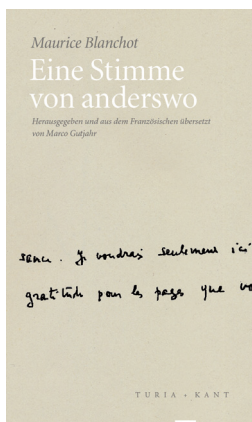 Maurice Blanchot
Eine Stimme
von anderswo
Herausgegeben und aus dem Französischen übersetzt
von Marco Gutjahr
sence. Je voudrais seulement ici
gratitude pour les pages que vo
TURIA + KANT